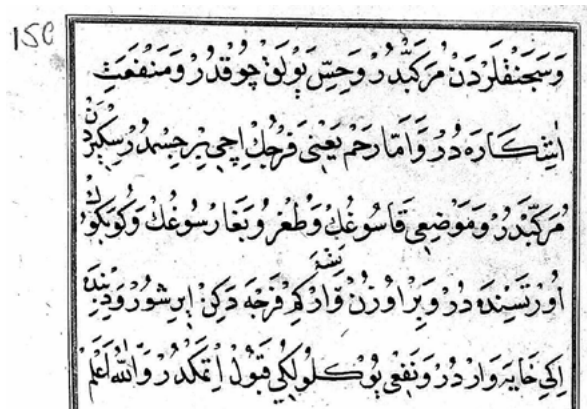 15٤
وَسَجَنْفَلَرْدَنْ مُرَكَّبْدُرْ وَحِسِّ بُولَقْ چُوقْدُرْ وَمَنْفَعَتِ
اٰشِكَارَه دُرْ وَاَمَّا رَحَمْ يَعْنِى فَرْجُكْ اِچِى بِرْ جِسْمدُرْ سِكِيرْدَنْ
مُرَكَّبْدُرْ وَمَوْضِعِى قَاسُوغُكْ وَبَغَارْسُوغُكْ وَكُوبَكُوكْ
اُورْتَسِنْدَه دُرْ وَبِرْ اُوزُنْ نَسْنَه وَارْ كِمْ فَرْجَه دَكِنْ اِيرِشُورْ وَدِبِنْدَه
اِكِى خَايَه وَارْ دُرْ وَنَفْعِى يُوكْلُولِكِى قَبُولْ اِتْمَكْدُرْ وَاللّٰهُ اَعْلَمْ